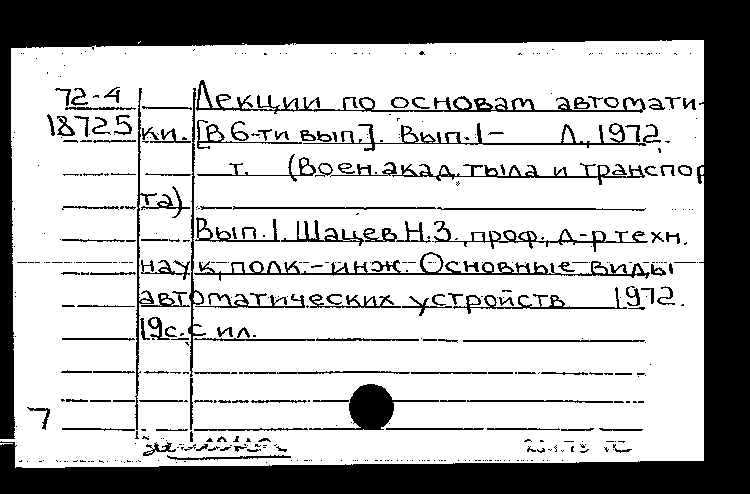 72-4 Лекции по основам автомати-
18725 ки. [В 6-ти вып.]. Вып. 1- Л., 1972.
т. (Воен. акад. тыла и транспор
та)
Вып. 1. Шацев Н.З., проф., д-р техн.
наук, полк.-инж. Основные виды
автоматических устройств 1972.
19с. с ил.
7